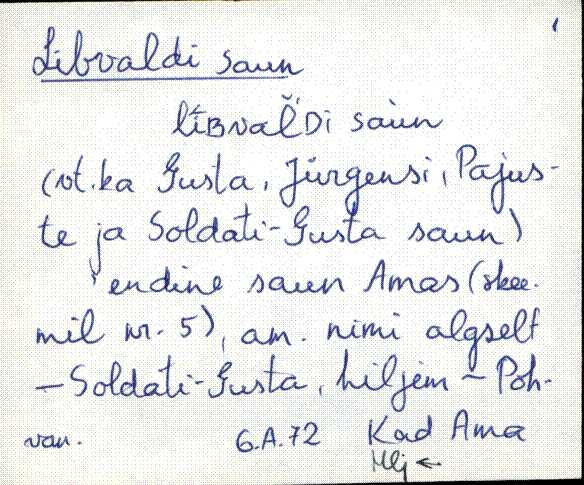 Libvaldi saun
líBvaĽDi sàun
(vt. ka Gusta, Jürgensi, Pajus-
te ja Soldati-Gusta saun)
endine saun Amas (skee-
mil nr. 5), am. nimi algselt
– Soldati-Gusta, hiljem – Poh-
van. 6.A.72 Kad Ama
Mlj ←